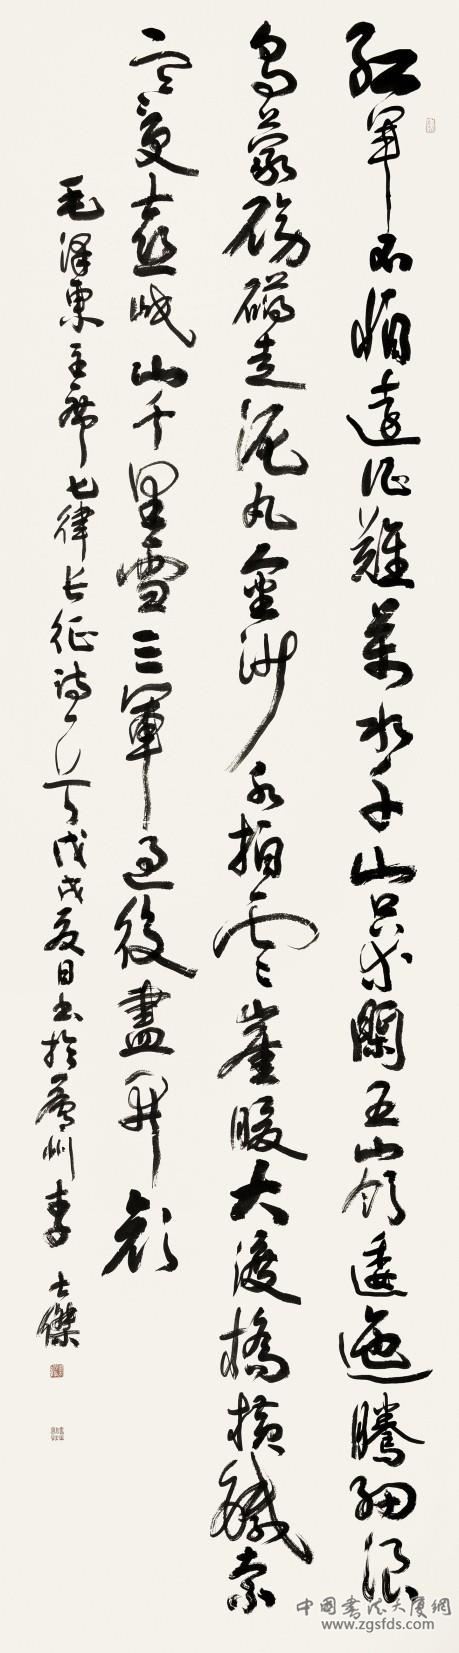 紅軍不怕遠征難萬水千山只等閑五嶺逶迤騰細浪
烏蒙磅礴走泥丸金沙水拍雲崖暖大渡橋橫鐵索
寒更喜岷山千里雪三軍過後盡開顏
毛泽東主席七律长征诗一首戊戌夏日书於廬州李士傑
中國書法大廈網
www.zgsfds.com